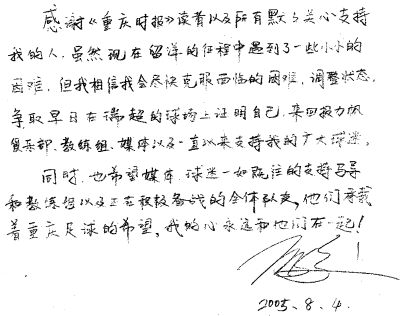 感谢《重庆时报》读者以及所有默默关心支持
我的人，虽然现在留洋的征程中遇到了一些小小的
困难，但我相信我会尽快克服面临的困难，调整状态，
争取早日在瑞超的球场上证明自己，来回报力帆
俱乐部、教练组、媒体以及一直以来支持我的广大球迷。
同时，也希望媒体、球迷一如既往的支持马导
和教练组以及正在积极备战的全体队友，他们承载
着重庆足球的希望，我的心永远和他们在一起！
2005.8.4.